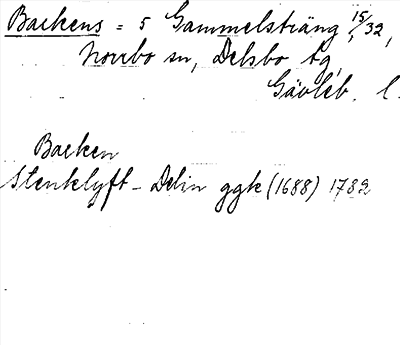 Backens = 5 Gammelsträng, 15/32,
Norrbo sn, Delsbo tg,
Gävleb. l.
Backen
Stenklyft - Delin ggk (1688) 1782